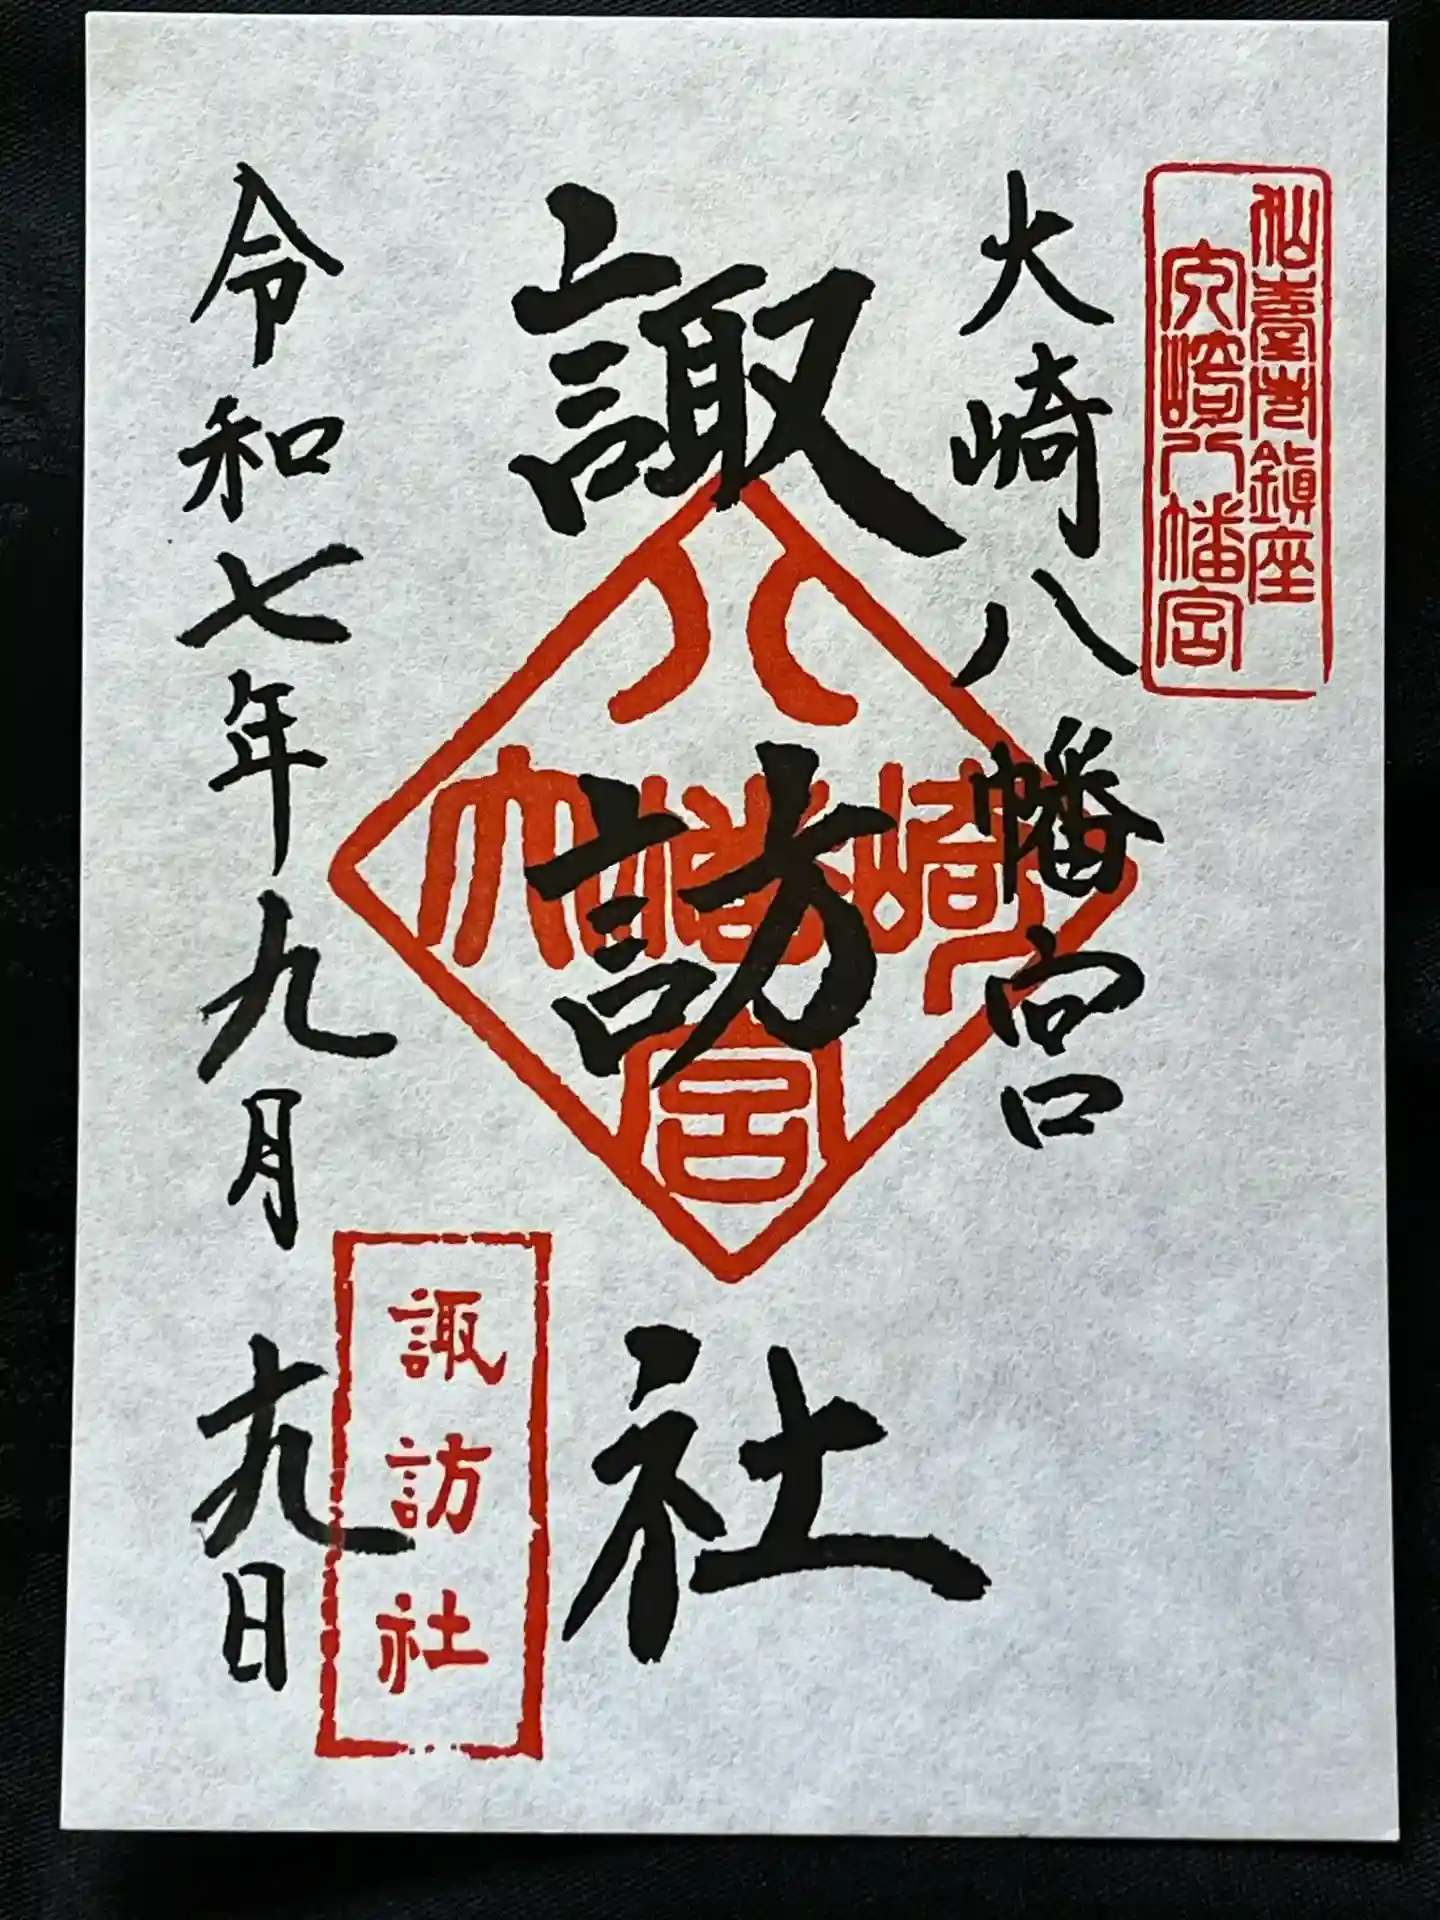 仙臺市鎮座
大崎八幡宮
大崎八幡宮
諏訪社
八
大幡崎
宮
諏訪社
令和七年九月十九日